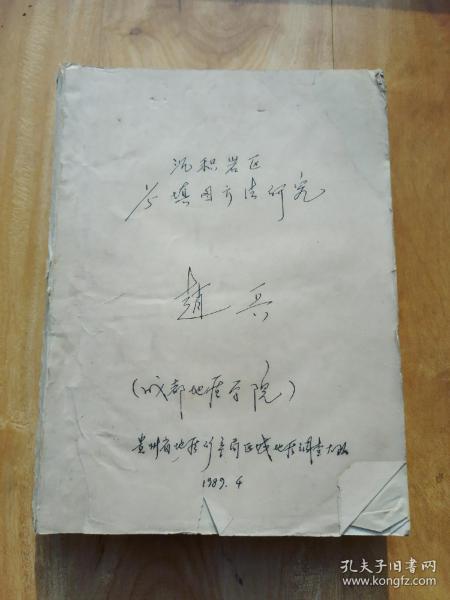 沉积岩区
1/5填图方法研究
趙兵
(成都地质学院)
贵州省地质矿产局区域地质调查大队
1989.4
孔夫子旧书网
www.kongfz.com